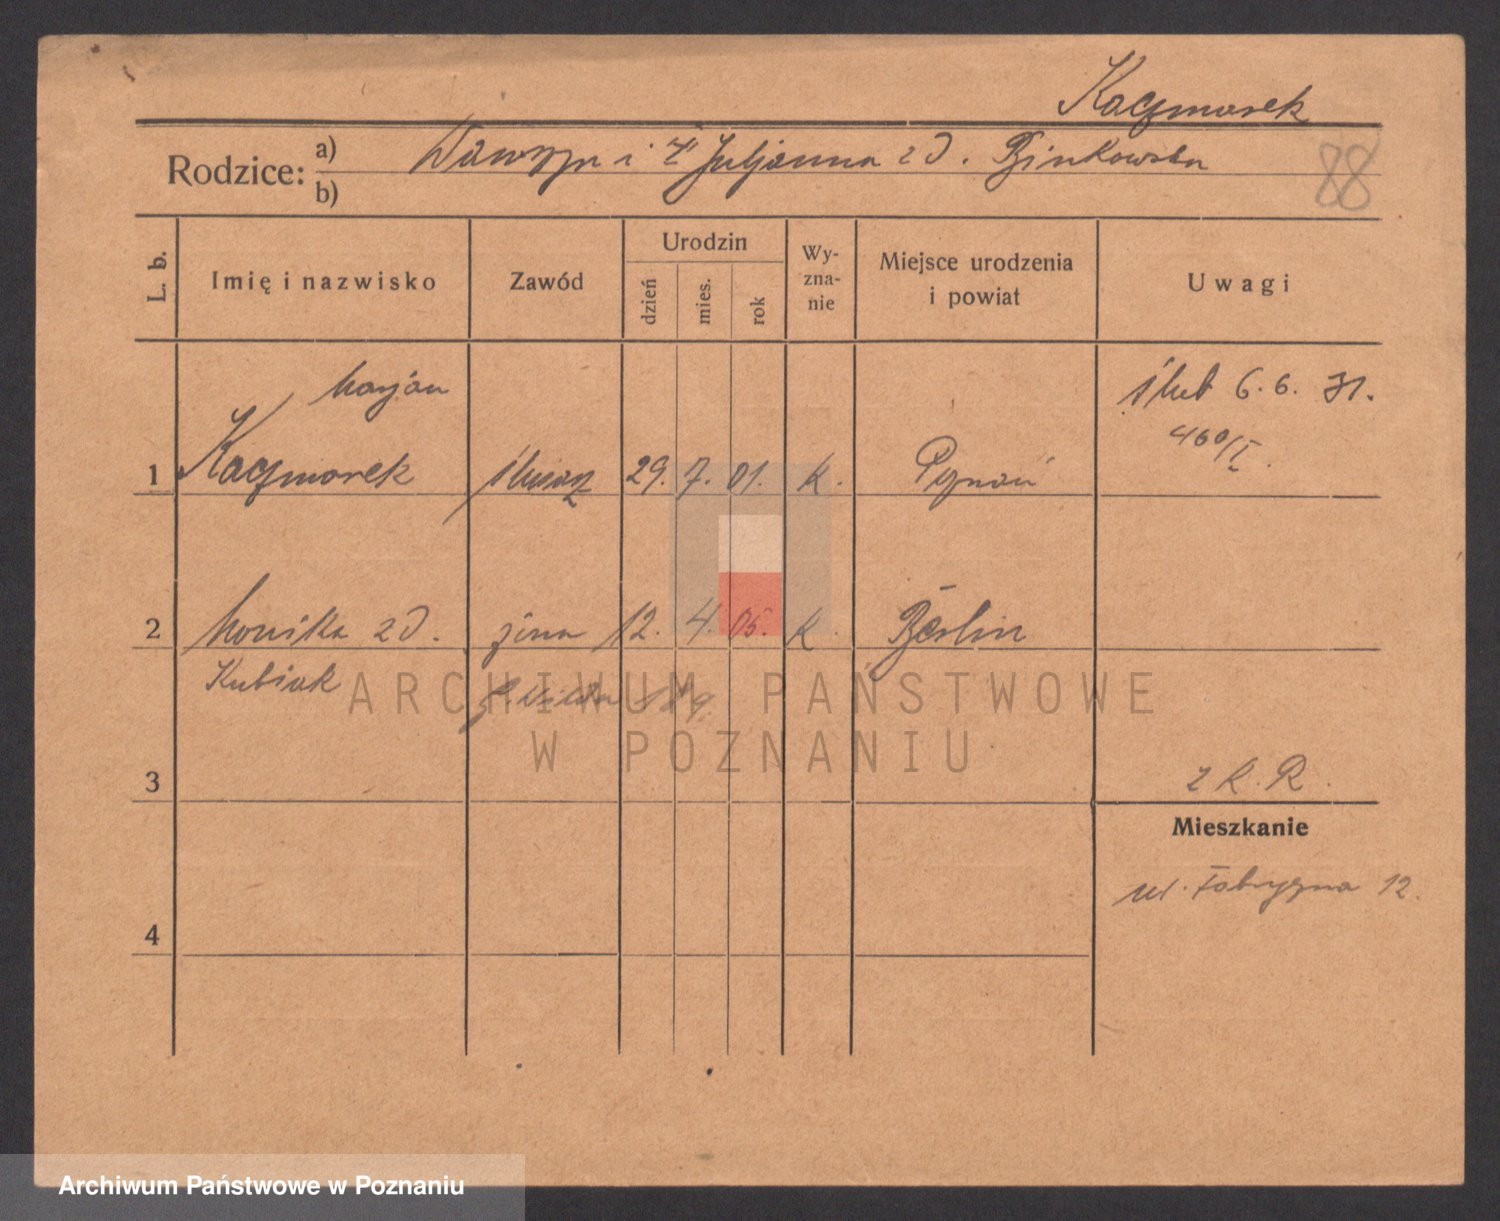 Kaczmarek
Rodzice: a) Wawrzyn i Juljanna zd. Binkowska
b)
88
L. b.
Imię i nazwisko
Zawód
Urodzin
dzień
mies.
rok
Wy-
zna-
nie
Miejsce urodzenia
i powiat
Uwagi
Marjan
ślub 6. 6. 31.
460/I.
1 Kaczmarek ślusarz 29. 7. 01. k. Poznań
2 Monika zd. żona 12. 4. 05. k. Berlin
Kubiak
ARCHIWUM PAŃSTWOWE
W POZNANIU
3
z K. R.
Mieszkanie
ul. Fabryczna 12.
4
Archiwum Państwowe w Poznaniu